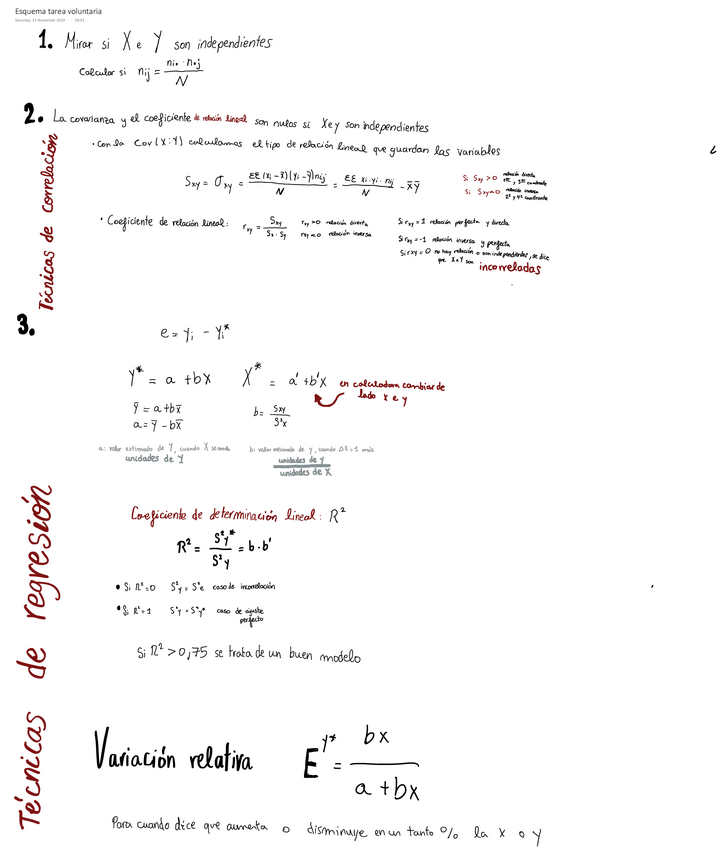 Esquema tarea voluntaria
1. Mirar si X e Y son independientes
Calcular si nij = ni• · n•j / N
2. La covarianza y el coeficiente de relación lineal son nulos si X e y son independientes
Técnicas de correlación
• Con la Cov(X:Y) calculamos el tipo de relación lineal que guardan las variables
Sxy = σxy = ΣΣ(xi - x̄)(yi - ȳ)nij / N = ΣΣ xi·yi·nij / N - x̄ȳ
Si Sxy > 0 relación directa
Si Sxy < 0 relación inversa
• Coeficiente de relación lineal: rxy = Sxy / Sx·Sy
rxy > 0 relación directa
rxy < 0 relación inversa
Si rxy = 1 relación perfecta y directa
Si rxy = -1 relación inversa y perfecta
Si rxy = 0 no hay relación o son independientes, se dice
que X e Y son incorreladas
3.
Técnicas de regresión
e = yi - yi*
Y* = a + bx X* = a' + b'x en calculadora cambiar de
lado x e y
ȳ = a + bx̄ b = Sxy / S²x
a = ȳ - bx̄
a: valor estimado de Y, cuando X sea
unidades de Y
b: valor estimado de y, cuando ΔX = 1 más
unidades de Y
unidades de X
Coeficiente de determinación lineal: R²
R² = S²y* / S²y = b·b'
• Si R² = 0 S²y = S²e caso de incorrelación
• Si R² = 1 S²y = S²y* caso de ajuste
perfecto
Si R² > 0,75 se trata de un buen modelo
Variación relativa E^y* = bx / a + bx
Para cuando dice que aumenta o disminuye en un tanto % la X o Y